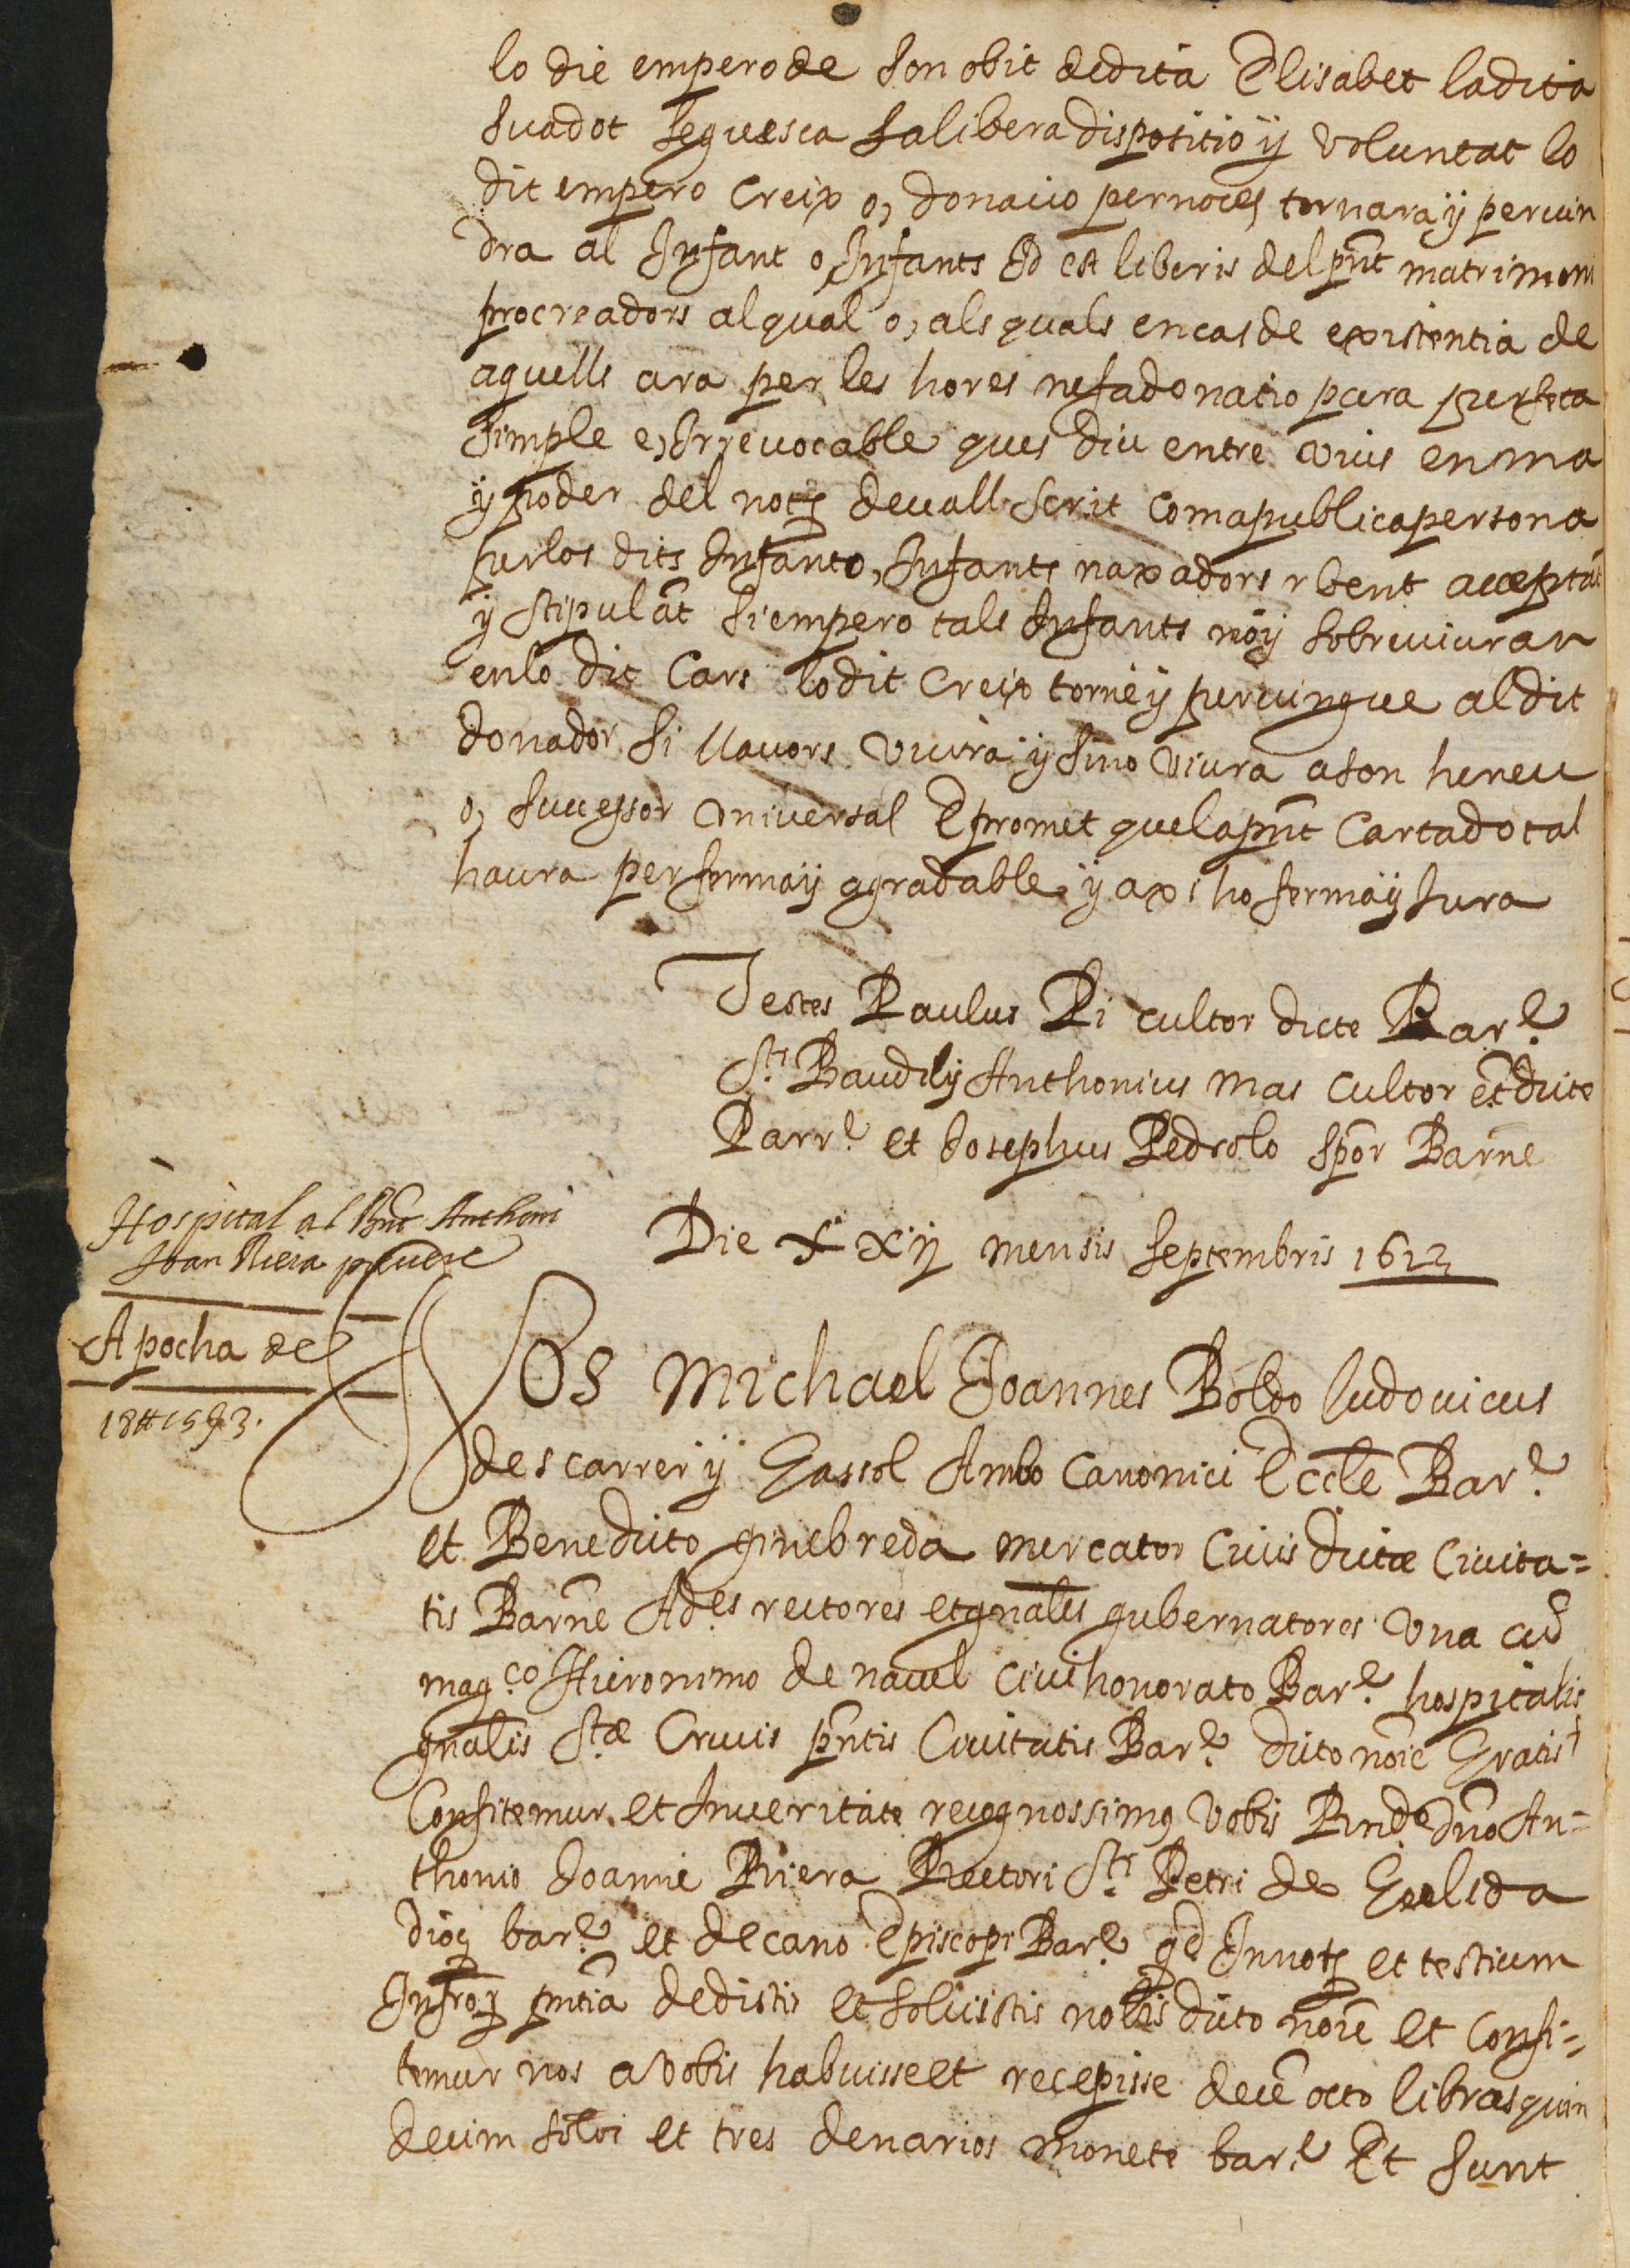 lo die emperode son obit dedita Elisabet ladita
suadot seguesca salibera dispositio y voluntat lo
dit empero Creix o, donacio pernoces tornara y pervin
dra al Infant o, Infants Id est liberis del pnt matrimoni
procreadors alqual o, als quals encas de existentia de
aquells ara per les hores nefadonatio pura perfeta
simple e, Irrevocable ques diu entre vius enma
y poder del noty devall scrit comapublicapersona
perlos dits Infanto, Infants naxadors rbent acceptāt
y stipulāt siempero tals Infants noy sobreviuran
enlo dit Cars lodit Creix torne y pervingue aldit
donador si llavors viura y sino viura ason hereu
o, successor vniversal E promet quelapnt Cartadotal
haura perfermay agradable y axi ho fermay Jura
Testes Paulus Pi cultor dicte Par.e
Sti Baudilij Anthonius mas cultor et dicte
Parr.e et Josephus Pedrolo spor Barne
Die XXij mensis septembris 1613
Hospital al Rnt Anthoni
Joan Riera prevere
Apocha de
18ll 15s 3.
Nos Michael Joannes Boldo ludovicus
descarrer y Gassol Ambo canonici Eccle Bar.e
et Benedicto ginebreda mercator Civis dictæ Civita=
tis Barne Ad.es rectores etgnales gubernatores Vna cū
mag.co Hieronimo de navel civi honorato Bar.e hospitalis
gnalis Stæ Crucis pntis Civitatis Bar.e dicto noīe Gratis
Confitemur et Inveritate recognossimq Vobis Rndo dno An=
thonio Joanni Riera Rectori Sti Petri de Gelida
dioq bar.e et decano Episcopi Bar.e qd Innoty et testium
Infroȝ pntia dedistis et solvistis nobis dicto noīe et Confi=
temur nos avobis habuisse et recepisse decē octo librasquin
decim solvi et tres denarios monete bar.e Et sunt